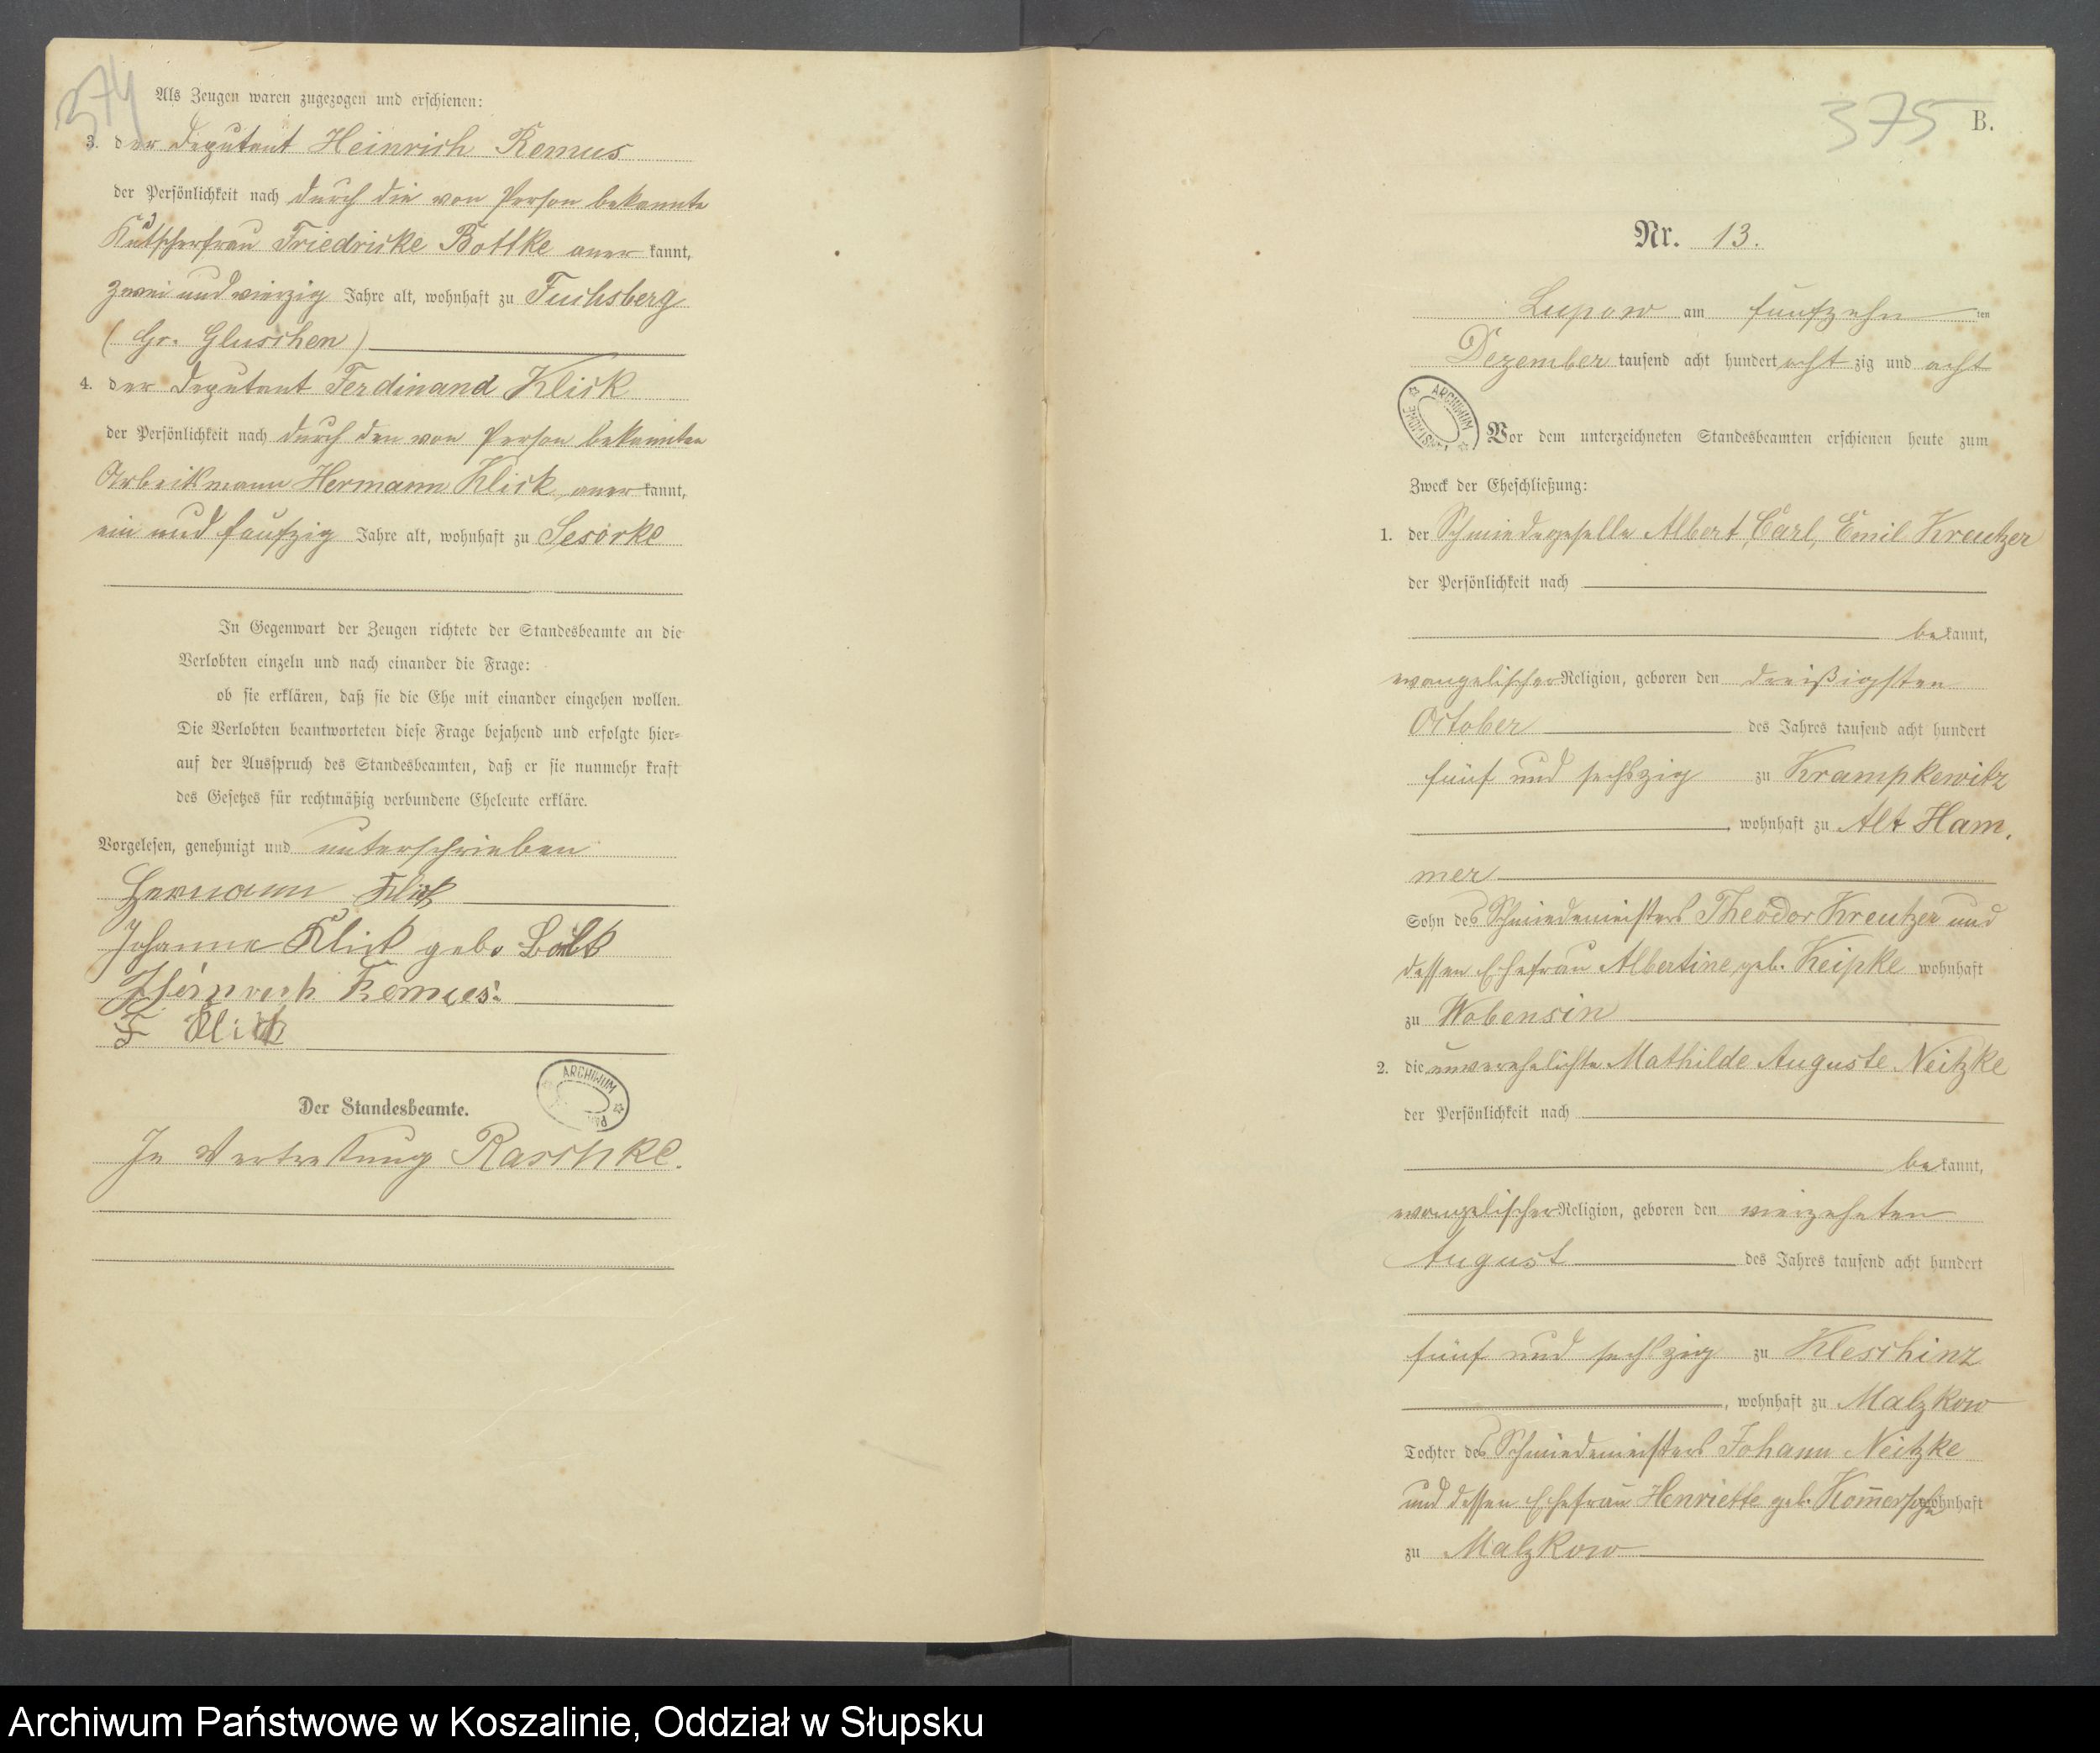 374
Als Zeugen waren zugezogen und erschienen:
3. der Deputant Heinrich Remus
der Persönlichkeit nach durch die von Person bekannte
Kutscherfrau Friedricke Bottke aner kannt,
zwei und vierzig Jahre alt, wohnhaft zu Fuchsberg
(Gr. Gluschen)
4. der Deputant Ferdinand Klick
der Persönlichkeit nach durch den von Person bekannten
Arbeitsmann Hermann Klick aner kannt,
ein und fünfzig Jahre alt, wohnhaft zu Sesörke
In Gegenwart der Zeugen richtete der Standesbeamte an die
Verlobten einzeln und nach einander die Frage:
ob sie erklären, daß sie die Ehe mit einander eingehen wollen.
Die Verlobten beantworteten diese Frage bejahend und erfolgte hier-
auf der Ausspruch des Standesbeamten, daß er sie nunmehr kraft
des Gesetzes für rechtmäßig verbundene Eheleute erkläre.
Vorgelesen, genehmigt und unterschrieben
Hermann Klick
Johanna Klick geb.
Heinrich Remus
F Klick
ARCHIWUM
Der Standesbeamte.
In Vertretung Raschke.
375 B.
Nr. 13.
Lupow am fünfzehn ten
Dezember tausend acht hundert acht zig und acht
ARCHIWUM
Vor dem unterzeichneten Standesbeamten erschienen heute zum
Zweck der Eheschließung:
1. der Schmiedegeselle Albert, Carl, Emil Kreutzer
der Persönlichkeit nach
be kannt,
evangelischer Religion, geboren den dreißigsten
October des Jahres tausend acht hundert
fünf und sechszig zu Krampkewitz
, wohnhaft zu Alt Ham,
mer
Sohn des Schmiedemeisters Theodor Kreutzer und
dessen Ehefrau Albertine, geb. Keipke wohnhaft
zu Wobensin
2. die unverehelichte Mathilde Auguste Neitzke
der Persönlichkeit nach
be kannt,
evangelischer Religion, geboren den vierzehnten
August des Jahres tausend acht hundert
fünf und sechszig zu Kleschinz
, wohnhaft zu Malzkow
Tochter des Schmiedemeisters Johann Neitzke
und dessen Ehefrau Henriette geb. wohnhaft
zu Malzkow
Archiwum Państwowe w Koszalinie, Oddział w Słupsku